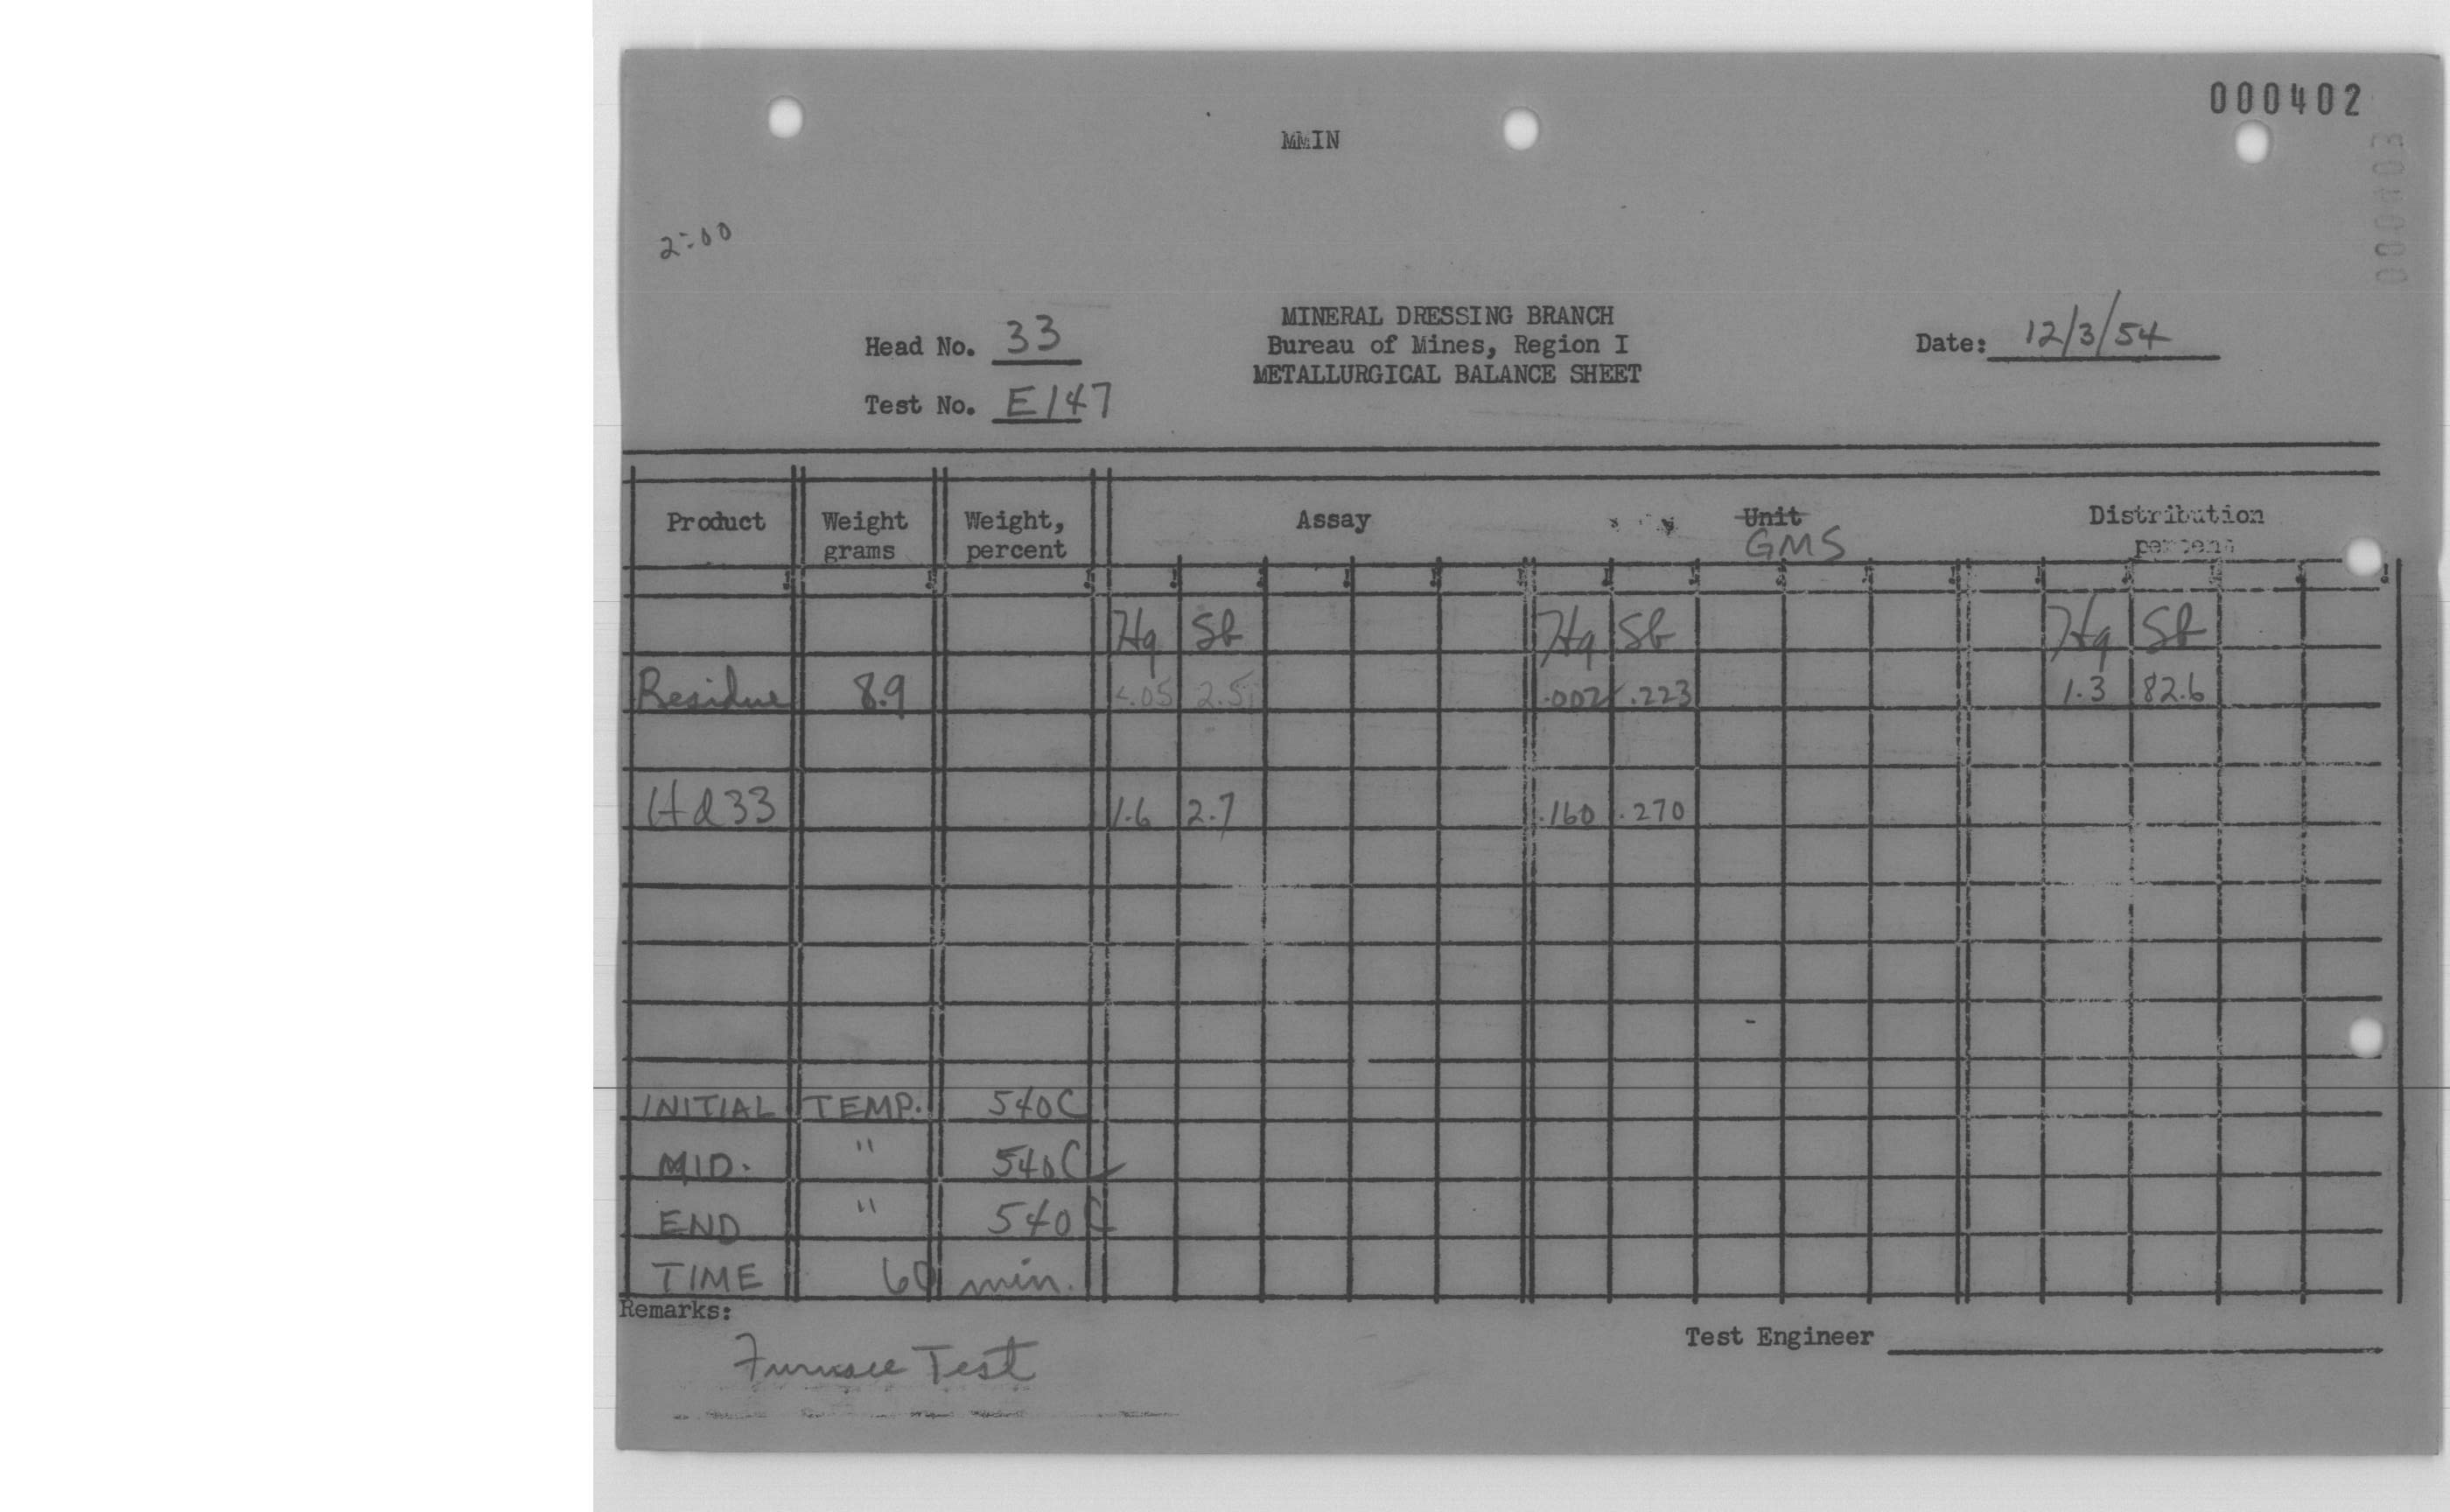 000402
000403
MMIN
2:00
Head No. 33
Test No. E147
MINERAL DRESSING BRANCH
Bureau of Mines, Region I
METALLURGICAL BALANCE SHEET
Date: 12/3/54
Product Weight grams Weight, percent Assay Unit GMS Distribution percent
Hg Sb Hg Sb Hg Sb
Residue 8.9 <.05 2.5 .002 .223 1.3 82.6
Hd 33 1.6 2.7 .160 .270
INITIAL TEMP. 540C
MID. " 540C
END " 540C
TIME 60 min.
Remarks:
Furnace Test
Test Engineer